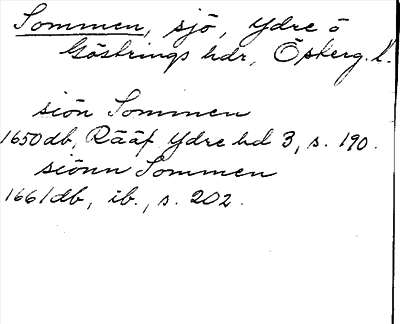 Sommen, sjö, Ydre o
Göstrings hdr, Öskerg. l.
siön Sommen
1650 db, Rääf Ydre hd 3, s. 190.
siönn Sommen
1661 db, ib., s. 202.